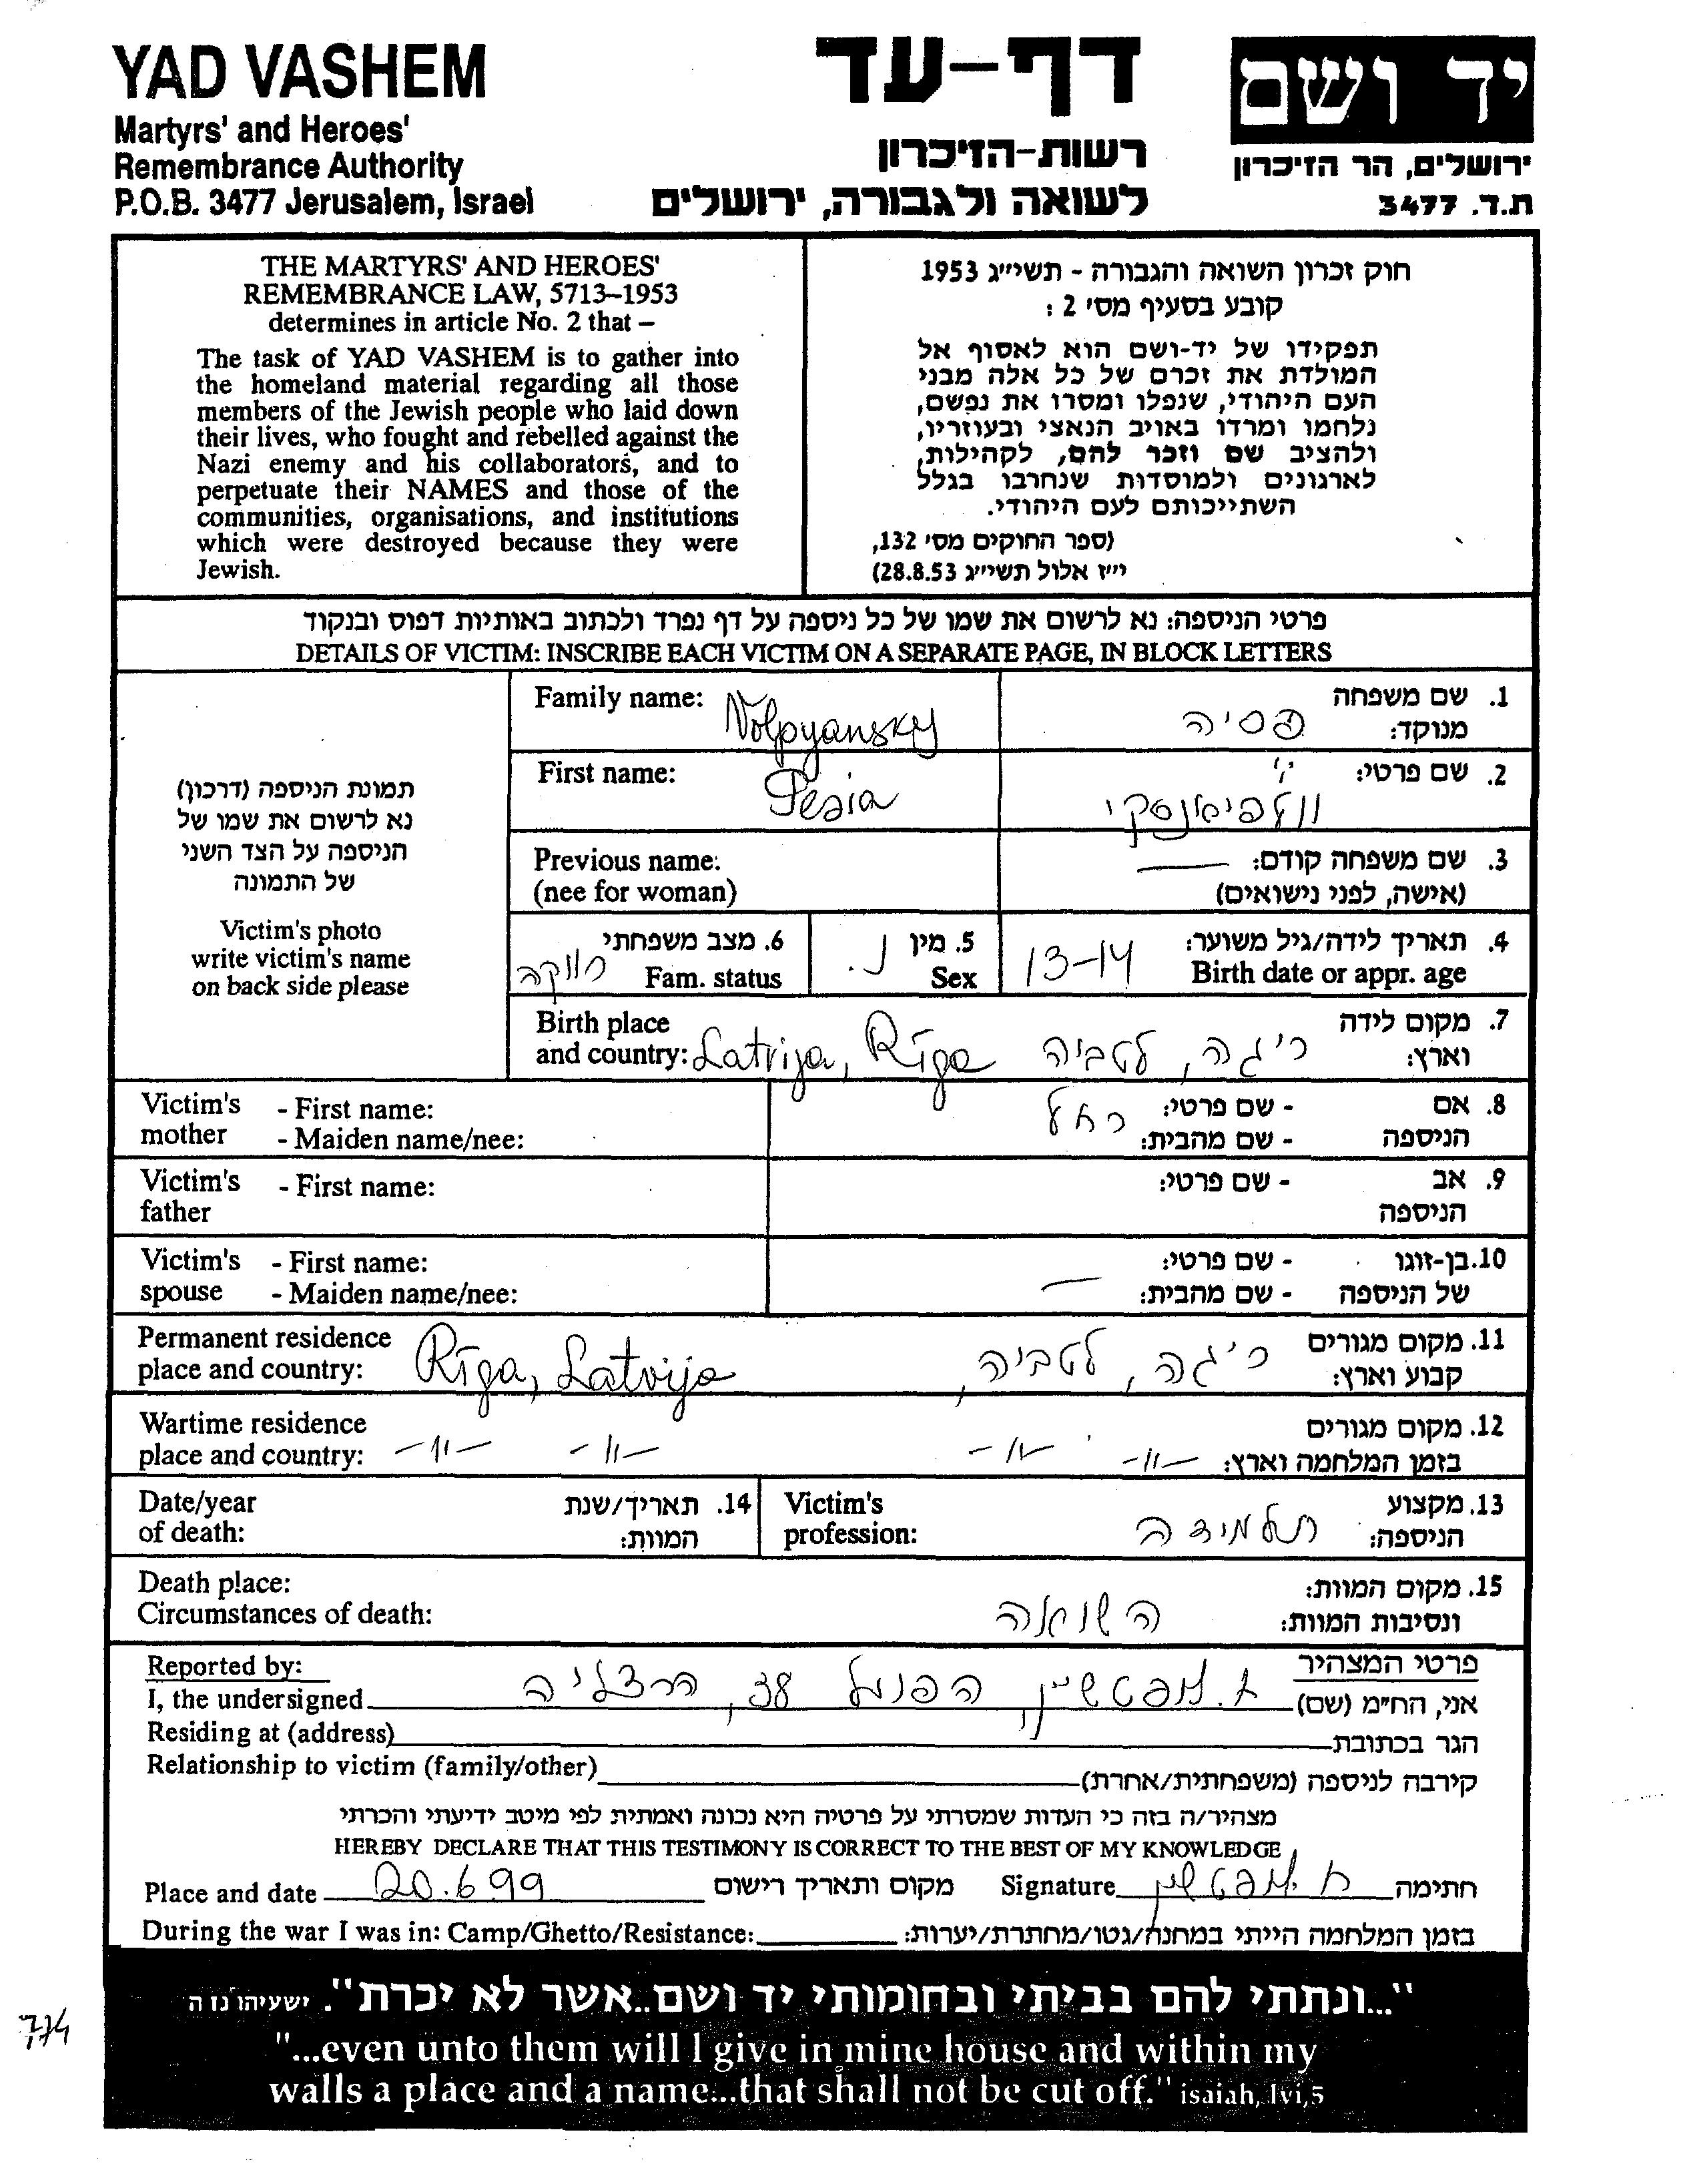 YAD VASHEM
Martyrs' and Heroes'
Remembrance Authority
P.O.B. 3477 Jerusalem, Israel
דף-עד
רשות-הזיכרון
לשואה ולגבורה, ירושלים
יד ושם
ירושלים, הר הזיכרון
ת.ד. 3477
THE MARTYRS' AND HEROES'
REMEMBRANCE LAW, 5713–1953
determines in article No. 2 that –
The task of YAD VASHEM is to gather into
the homeland material regarding all those
members of the Jewish people who laid down
their lives, who fought and rebelled against the
Nazi enemy and his collaborators, and to
perpetuate their NAMES and those of the
communities, organisations, and institutions
which were destroyed because they were
Jewish.
חוק זכרון השואה והגבורה - תשי״ג 1953
קובע בסעיף מס׳ 2 :
תפקידו של יד-ושם הוא לאסוף אל
המולדת את זכרם של כל אלה מבני
העם היהודי, שנפלו ומסרו את נפשם,
נלחמו ומרדו באויב הנאצי ובעוזריו,
ולהציב שם וזכר להם, לקהילות,
לארגונים ולמוסדות שנחרבו בגלל
השתייכותם לעם היהודי.
(ספר החוקים מס׳ 132,
י״ז אלול תשי״ג 28.8.53)
פרטי הניספה: נא לרשום את שמו של כל ניספה על דף נפרד ולכתוב באותיות דפוס ובנקוד
DETAILS OF VICTIM: INSCRIBE EACH VICTIM ON A SEPARATE PAGE, IN BLOCK LETTERS
תמונת הניספה (דרכון)
נא לרשום את שמו של
הניספה על הצד השני
של התמונה
Victim's photo
write victim's name
on back side please
Family name: Volpyansky פסיה 1. שם משפחה
מנוקד:
First name: Pesia וולפיאנסקי 2. שם פרטי:
Previous name:
(nee for woman)
3. שם משפחה קודם: —
(אישה, לפני נישואים)
4. תאריך לידה/גיל משוער: 13-14
Birth date or appr. age
5. מין נ.
Sex
6. מצב משפחתי רווקה
Fam. status
Birth place
and country: Latvija, Rīga ריגה, לטביה
7. מקום לידה
וארץ:
Victim's mother - First name:
- Maiden name/nee:
8. אם הניספה - שם פרטי: רחל
- שם מהבית:
Victim's father - First name:
9. אב הניספה - שם פרטי:
Victim's spouse - First name:
- Maiden name/nee:
10. בן-זוגו של הניספה - שם פרטי:
- שם מהבית: —
Permanent residence
place and country: Rīga, Latvija
11. מקום מגורים
קבוע וארץ: ריגה, לטביה,
Wartime residence
place and country: -11- -11-
12. מקום מגורים
בזמן המלחמה וארץ: -11- -11-
Date/year
of death:
14. תאריך/שנת
המוות:
Victim's
profession:
13. מקצוע
הניספה: תלמידה
Death place:
Circumstances of death:
15. מקום המוות:
ונסיבות המוות: השואה
Reported by:
פרטי המצהיר
I, the undersigned
אני, הח״מ (שם) הפועל 38, הרצליה
Residing at (address)
הגר בכתובת
Relationship to victim (family/other)
קירבה לניספה (משפחתית/אחרת)
מצהיר/ה בזה כי העדות שמסרתי על פרטיה היא נכונה ואמתית לפי מיטב ידיעתי והכרתי
HEREBY DECLARE THAT THIS TESTIMONY IS CORRECT TO THE BEST OF MY KNOWLEDGE
Place and date 20.6.99 מקום ותאריך רישום
Signature חתימה
During the war I was in: Camp/Ghetto/Resistance:
בזמן המלחמה הייתי במחנה/גטו/מחתרת/יערות:
"...ונתתי להם בביתי ובחומותי יד ושם..אשר לא יכרת". ישעיהו נו ה
"...even unto them will I give in mine house and within my
walls a place and a name...that shall not be cut off." isaiah, lvi,5
774